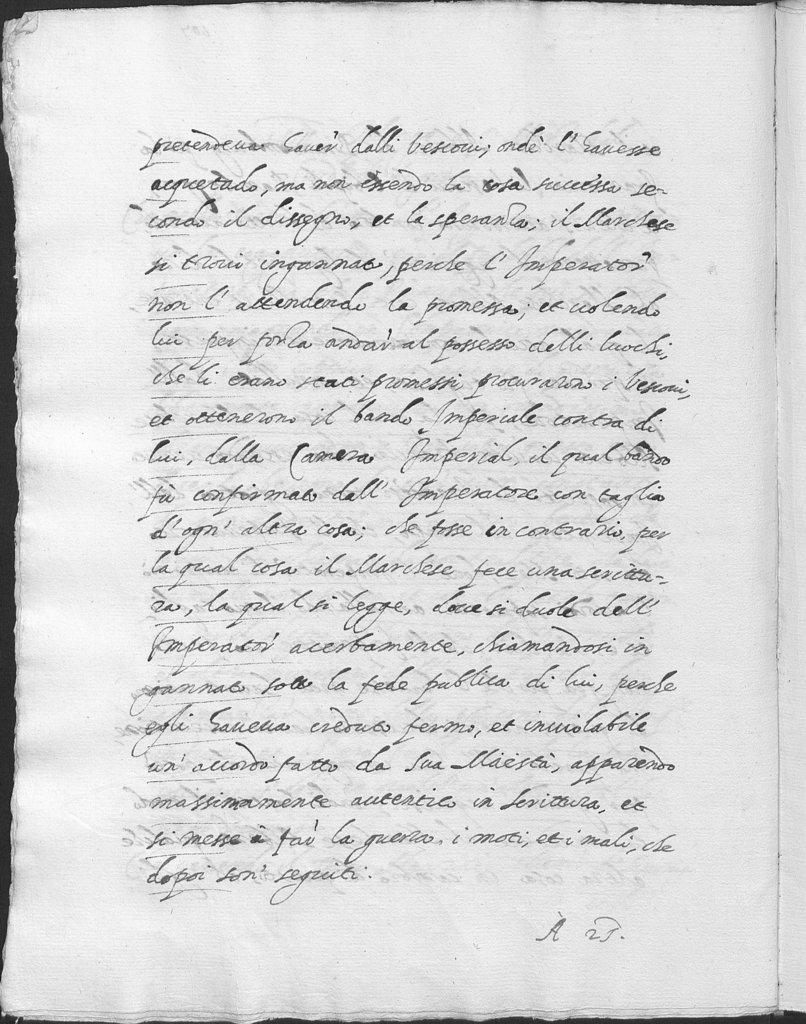 pretendeua hauer' dalli vescoui; onde l'hauesse
acquetado, ma non essendo la cosa successa se-
condo il dissegno, et la speranza; il Marchese
si trouò ingannato, perche l'Imperator'
non l'attendendo la promessa; et uolendo
lui per forza andar' al possesso delli luochi,
che li erano stati promessi, procurarono i vescoui,
et ottenerono il bando Imperiale contra di
lui, dalla Camera Imperial, il qual bando
fù confirmato dall'Imperatore con taglia
d'ogn'altra cosa; che fosse in contrario, per
la qual cosa il Marchese fece una scrittu-
ra, la qual si legge, doue si duole dell'
Imperator' acerbamente, chiamandosi in
gannato sotto la fede publica di lui, perche
egli haueua creduto fermo, et inuiolabile
un'accordo fatto da sua Maestà, apparendo
massimamente autentico in scrittura, et
si messe à far' la guerra, i moti, et i mali, che
dopoi son' seguiti.